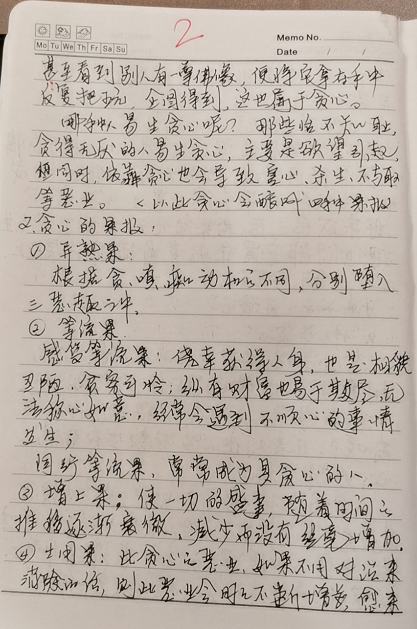 2
Memo No.
Mo Tu We Th Fr Sa Su
Date / /
甚至看到别人有一尊佛像，便将它拿在手中
反复把玩，企图得到，这也属于贪心。
哪种人易生贪心呢？那些恬不知耻，
贪得无厌的人易生贪心，主要是欲望引起，
但同时，依靠贪心也会导致害心、杀生、不与取
等恶业。〈以此贪心会酿成四种果报
2.贪心的果报：
① 异熟果：
根据贪、嗔、痴动机之不同，分别堕入
三恶趣之中。
② 等流果
感受等流果：侥幸获得人身，也是相貌
丑陋、贫穷可怜；纵有财富也易于耗尽，无
法称心如意，经常会遇到不顺心的事情
发生；
同行等流果，常常成为具贪心的人。
③ 增上果：使一切的盛事，随着时间之
推移逐渐衰微，减少而没有丝毫增加。
④ 士用果：此贪心之恶业，如果不用对治来
消除的话，则此恶业会时时不断增长，愈来